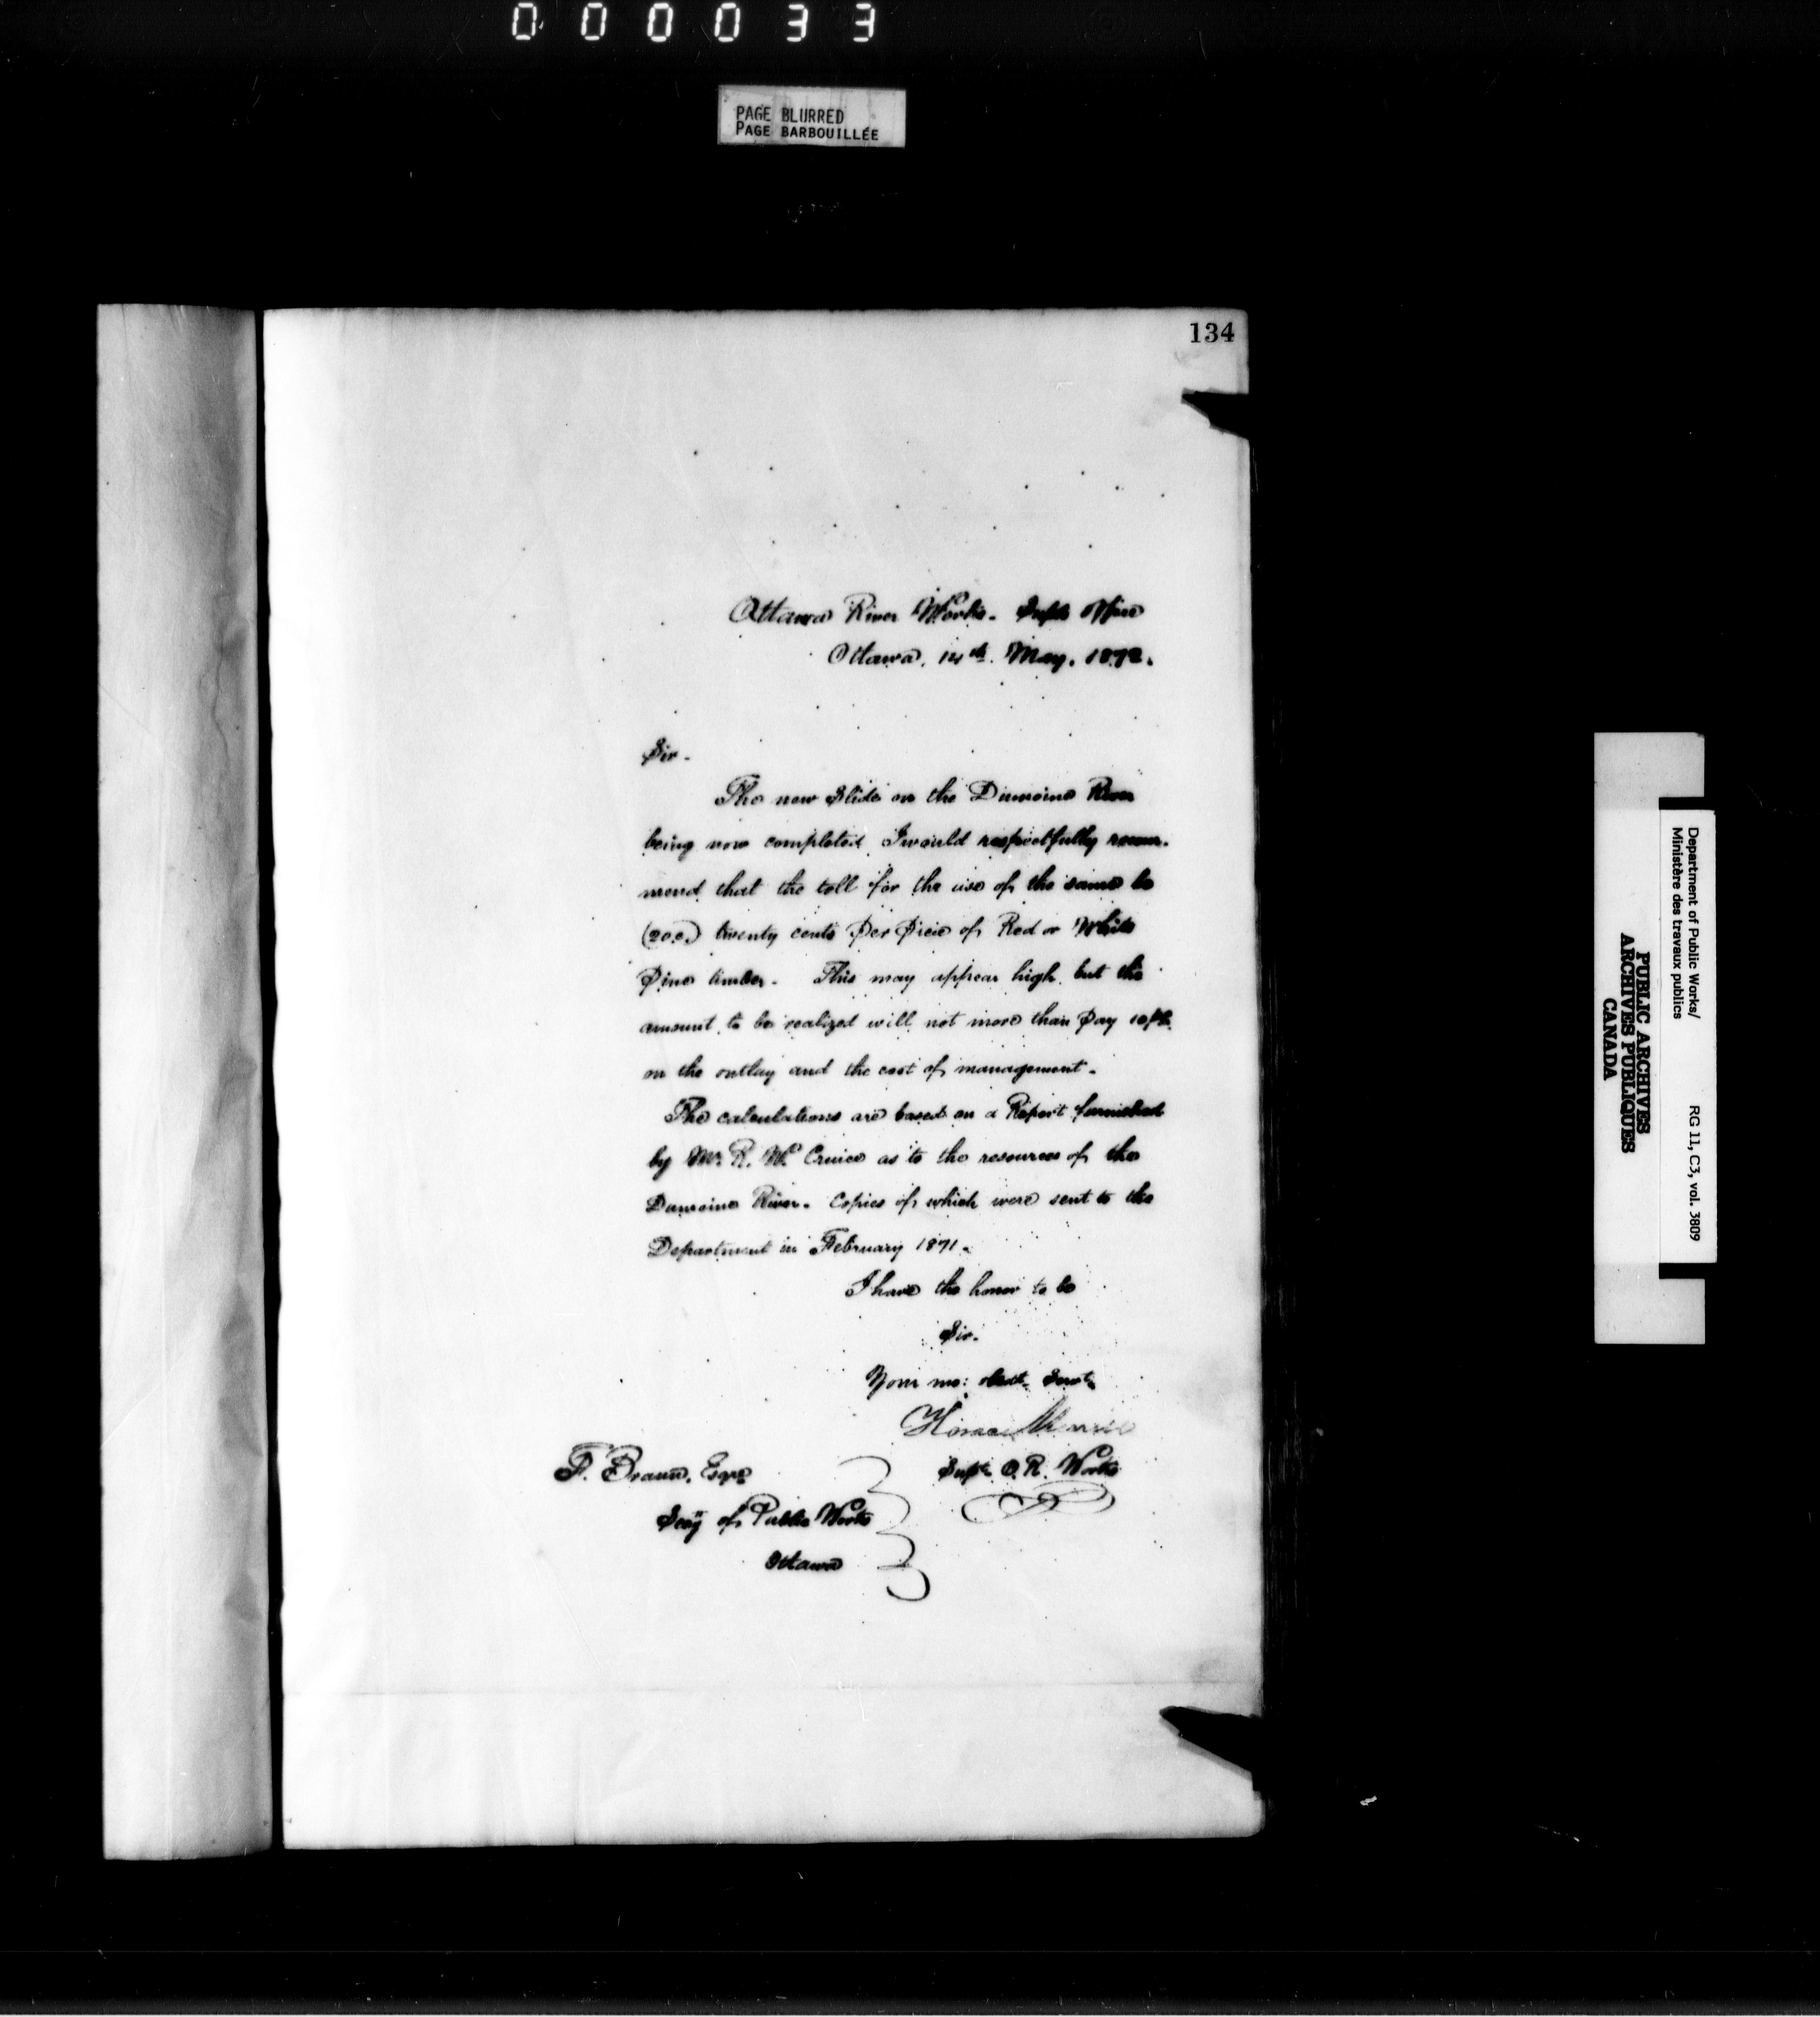 000033
PAGE BLURRED
PAGE BARBOUILLÉE
134
Ottawa River Works. Supts Office
Ottawa, 14th. May. 1872.
Sir.
The new Slide on the Dumoine River
being now completed I would respectfully recom-
mend that the toll for the use of the same be
(20c.) twenty cents Per Piece of Red or White
Pine timber. This may appear high, but the
amount to be realized will not more than Pay
on the outlay and the cost of management.
The calculations are based on a Report furnished
by Mr. R. W. Cruice as to the resources of the
Dumoine River. Copies of which were sent to the
Department in February 1871.
I have the honor to be
Sir.
Your mo: obdt. Servt.
Horace Merrill
Supt. O. R. Works
F. Braun, Esqre
Secy of Public Works
Ottawa
Department of Public Works/
Ministère des travaux publics
RG 11, C3, vol. 3809
PUBLIC ARCHIVES
ARCHIVES PUBLIQUES
CANADA